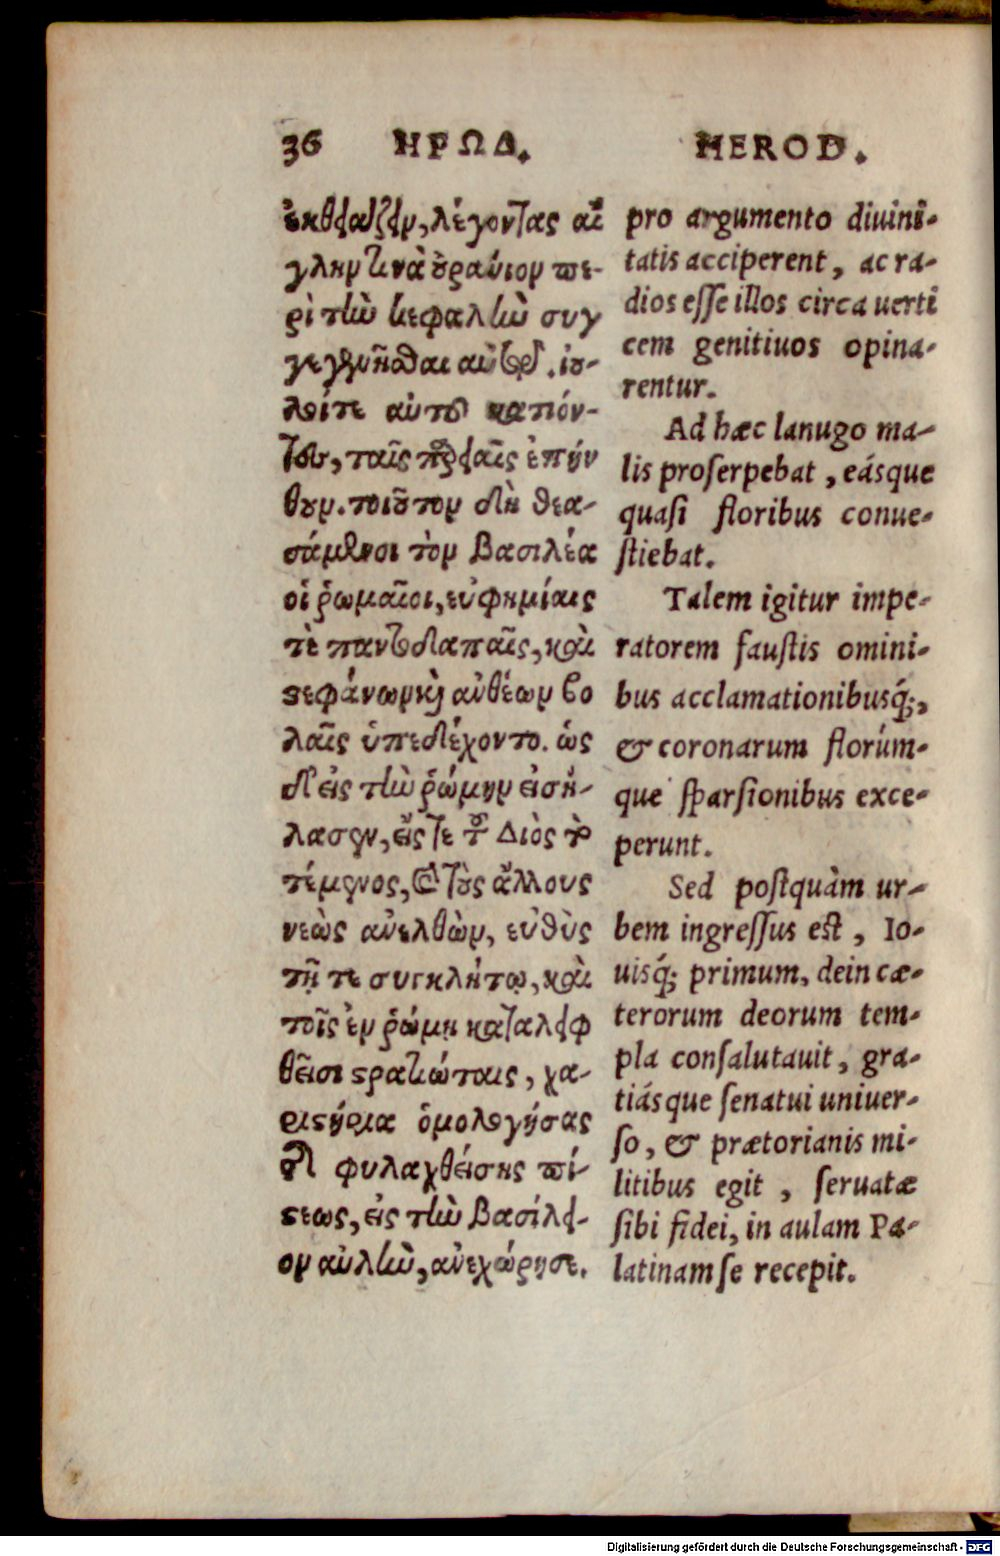 36 ΗΡΩΔ. HEROD.
ἐκθειάζειν, λέγοντας αἴ
γλην τινὰ οὐράνιον πε-
ρὶ τὴν κεφαλὴν συγ
γεγενῆσθαι αὐτῷ. ἰού-
λοι τε αὐτῷ κατιόν-
τες, ταῖς παρειαῖς ἐπήν
θουν. τοιοῦτον δὴ θεα-
σάμενοι τὸν βασιλέα
οἱ ῥωμαῖοι, εὐφημίαις
τὲ παντοδαπαῖς, καὶ
στεφάνων καὶ ἀνθέων βο
λαῖς ὑπεδέχοντο. ὡς
δ' εἰς τὴν ῥώμην εἰσή-
λασεν, εἴς τε τὸ τοῦ Διὸς
τέμενος, καὶ τοὺς ἄλλους
νεὼς ἀνελθὼν, εὐθὺς
τῇ τε συγκλήτῳ, καὶ
τοῖς ἐν ῥώμῃ καταλειφ
θεῖσι στρατιώταις, χα-
ριστήρια ὁμολογήσας
τῆς φυλαχθείσης πί-
στεως, εἰς τὴν βασίλει-
ον αὐλὴν, ἀνεχώρησε.
pro argumento diuini-
tatis acciperent, ac ra-
dios esse illos circa uerti
cem genitiuos opina-
rentur.
Ad hæc lanugo ma-
lis proserpebat, eásque
quasi floribus conue-
stiebat.
Talem igitur impe-
ratorem faustis omini-
bus acclamationibusq́;,
& coronarum florúm-
que sparsionibus exce-
perunt.
Sed postquàm ur-
bem ingressus est, Io-
uisq́; primum, dein cæ-
terorum deorum tem-
pla consalutauit, gra-
tiásque senatui uniuer-
so, & prætorianis mi-
litibus egit, seruatæ
sibi fidei, in aulam Pa-
latinam se recepit.
Digitalisierung gefördert durch die Deutsche Forschungsgemeinschaft - DFG